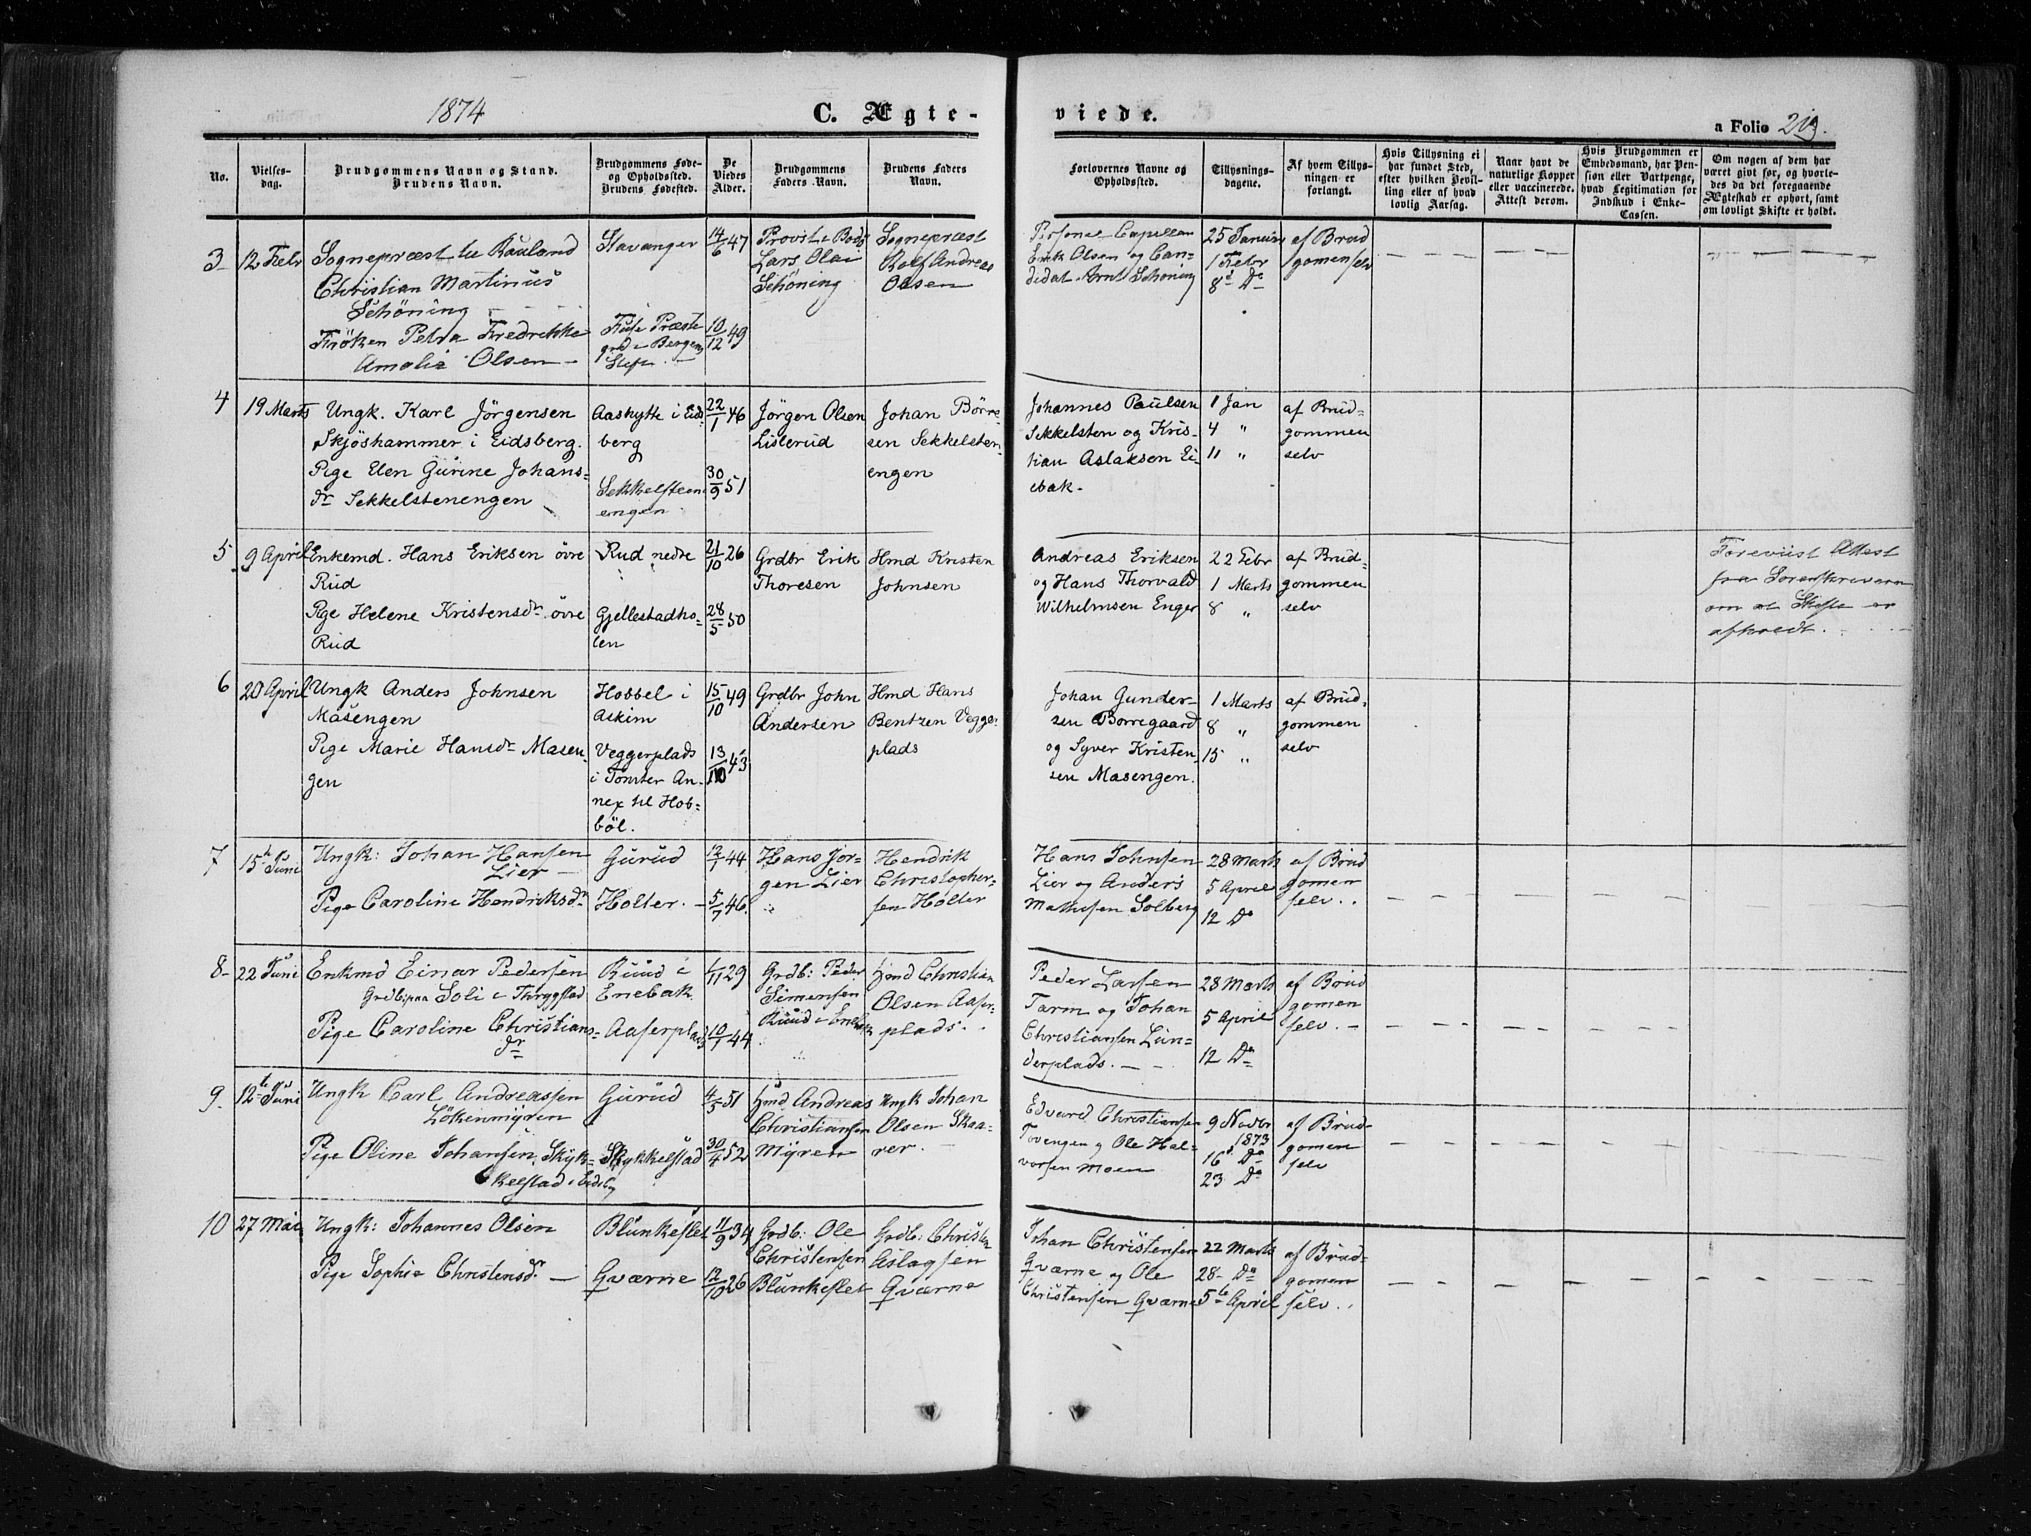 1874
C. Ægte-
viede.
a Folio 219.
No.
Vielses-
dag.
Brudgommens Navn og Stand.
Brudens Navn.
Brudgommens Føde-
og Opholdssted.
Brudens Fødested.
De
Viedes
Alder.
Brudgommens
Faders Navn.
Brudens Faders
Navn.
Forlovernes Navne og
Opholdssted.
Tillysnings-
dagene.
Af hvem Tillys-
ningen er
forlangt.
Hvis Tillysning ei
har fundet Sted,
efter hvilken Bevil-
ling eller af hvad
lovlig Aarsag.
Naar havt de
naturlige Kopper
eller vaccinerede.
Attest derom.
Hvis Brudgommen er
Embedsmand, har Pen-
sion eller Vartpenge,
hvad Legitimation for
Indskud i Enke-
Cassen.
Om nogen af dem har
været givt før, og hvorle-
des da det foregaaende
Ægteskab er ophørt, samt
om lovligt Skifte er holdt.
3
12 Febr
Sognepræst til Rauland
Christian Martinus
Schöning
Fröken Petra Fredrikke
Amalie Olsen
Stavanger
Fuse Præste
grd i Bergens
Stift
14/6 47
10/12 49
Provst i Bodö
Lars Olai
Schöning
Sognepræst
Rolf Andreas
Olsen
Personel Capellan
Erik Olsen og Can-
didat Arnt Schöning
25 Januar
1 Febr
8 Do
af Brud
gomen selv
4
19 Marts
Ungk. Karl Jörgensen
Skjöshammer i Eidsberg.
Pige Uen Gurine Johans-
dr Sekkelstenengen
Aashytte i Eids-
berg
Sekkelsteens
engen
22/1 46
30/9 51
Jörgen Olsen
Lislerud
Johan Börre-
sen Sekkelsten-
engen
Johannes Paulsen
Sekkelsten og Kris-
tian Aslaksen Ei-
ebak.
1 Jan
4 "
11 "
af Brud-
gommen
selv
5
9 April
Enkemd. Hans Eriksen övre
Rud
Pige Helene Kristensdr. övre
Rud
Rud nedre
Gjellestadho-
len
21/10 26
28/5 50
Grdbr Erik
Thoresen
Hmd Kristen
Johnsen
Andreas Eriksen
og Hans Thorvald
Wilhelmsen Enger
22 Febr
1 Marts
8 "
af Brud-
gommen
selv
Foreviist Attest
fra Sorenskriveren
om at Skifte er
afholdt.
6
20 April
Ungk Anders Johnsen
Masengen
Pige Marie Hansdr Masen-
gen
Hobbel i
Askim
Veggerplads
i Tomter An-
nex til Hob-
böl.
15/10 49
13/10 43
Grdbr John
Andersen
Hmd Hans
Bentzen Vegger-
plads
Johan Gunder-
sen Borregaard
og Syver Kristen-
sen Masengen.
1 Marts
8 "
15 "
af Brud-
gommen
selv
7
15de Juni
Ungk: Johan Hansen
Lier
Pige Caroline Hendriksdr
Gurud
Holter.
12/1 44
5/7 46
Hans Jör-
gen Lier
Hendrik
Christopher-
sen Holter
Hans Johnsen
Lier og Anders
Mathisen Solberg
28 Marts
5 April
12 Do
af Brud
gomen
selv.
8
22 Juni
Enkmd Einar Pedersen
Grdbr paa Soli i Thrygstad
Pige Caroline Christians-
dr
Ruud i
Enebak
Aaserplads
1/11 29
10/1 44
Grdb: Peder
Simensen
Ruud i Enebak
Hmd Christian
Olsen Aaser-
plads.
Peder Larsen
Tarm og Johan
Christiansen Lun-
derplads.
28 Marts
5 April
12 Do
af Brud
gomen
selv.
9
12te Juni
Ungk Carl Andreassen
Lökenmyren
Pige Oline Johansen, Skyk-
kelstad i Eidsbg
Gurud
Skykkelstad
4/5 51
30/4 52
Hmd Andreas
Christiansen
Myren
Ungk Johan
Olsen Skaa-
rer
Edvard Christiansen
Tovengen og Ole Hal-
vorsen Moen
9 Novbr
1873
16 Do
23 Do
af Brud-
gomen
selv
10
27 Mai
Ungk: Johannes Olsen
Pige Sophie Christensdr.
Blunkeflet
Qværne
11/9 34
12/10 26
Grdb: Ole
Christensen
Blunkeflet
Grdb: Christen
Aslagsen
Qværne
Johan Christensen
Qværne og Ole
Christensen Qværne
22 Marts
28 Do
5te April
af Brud-
gomen
selv.